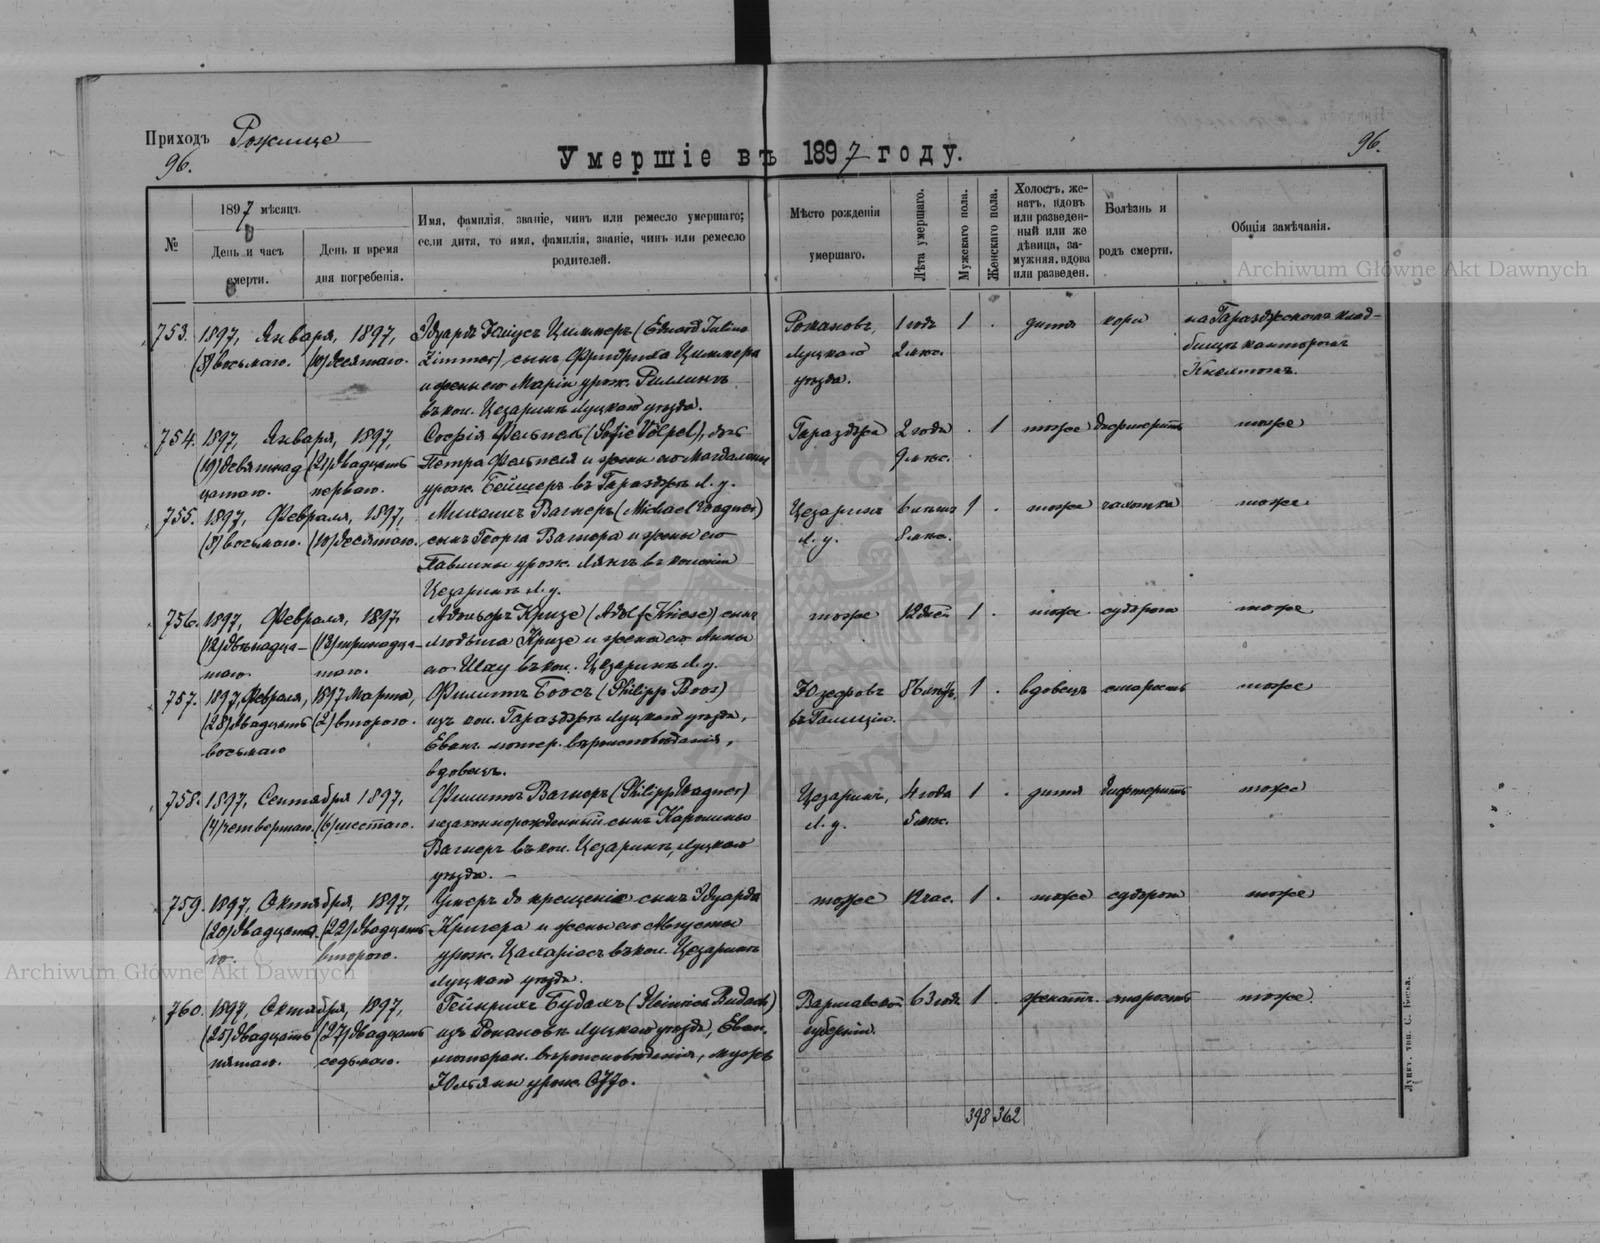 Приходъ Рожище
96.
96.
Умершіе въ 1897 году.
№
1897 мѣсяцъ
День и часъ смерти.
День и время дня погребенія.
Имя, фамилія, званіе, чинъ или ремесло умершаго;
если дитя, то имя, фамилія, званіе, чинъ или ремесло
родителей.
Мѣсто рожденія
умершаго.
Лѣта умершаго.
Мужскаго пола.
Женскаго пола.
Холостъ, же-
натъ, вдовъ
или разведен-
ный или же
дѣвица, за-
мужняя, вдова
или разведен.
Болѣзнь и
родъ смерти.
Общія замѣчанія.
Archiwum Główne Akt Dawnych
753. 1897, Января, 1897, Эдуардъ Юліусъ Циммеръ (Eduard Julius Рожановъ, 1 годъ 1 . дитя кори на Гараздженскомъ клад-
(8) восьмаго. (10) десятаго. Zimmer), сынъ Фридриха Циммера Луцкаго 2 мѣс. бищѣ канторомъ
и жены его Маріи урож. Риллингъ уѣзда.
въ кол. Цезаринъ Луцкаго уѣзда.
754. 1897, Января, 1897, Софія Фельпель (Sofie Völpel), дочь Гараздже 2 года . 1 тоже дифтеритъ тоже
(19) девятнад (21) двадцать Петра Фельпеля и жены его Магдалены 9 мѣс.
цатаго. перваго. урож. Бейшеръ въ Гараздже Л. у.
755. 1897, Февраля, 1897, Михаилъ Вагнеръ (Michael Wagner) Цезаринъ 6 лѣтъ 1 . тоже чахотка тоже
(8) восьмаго. (10) десятаго. сынъ Георга Вагнера и жены его Л. у. 8 мѣс.
Павлины урож. Лянгъ въ колоніи
Цезаринъ Л. у.
756. 1897, Февраля, 1897. Адольфъ Кризе (Adolf Kriese) сынъ тоже 12 дней 1 . тоже судорога тоже
(12) двѣнадца- (13) тринадца- Людвига Кризе и жены его Анны
таго. таго. въ кол. Цезаринъ Л. у.
757. 1897, Февраля, 1897 Марта, Филиппъ Боосъ (Philipp Boos) 86 лѣтъ, 1 . вдовецъ старость тоже
(28) двадцать (2) второго. изъ кол. Гараздже Луцкаго уѣзда, въ Галиціи.
восьмаго Еван. лютер. вѣроисповѣданія,
вдовецъ.
758. 1897, Сентября 1897, Филиппъ Вагнеръ (Philipp Wagner) Цезаринъ, 4 года 1 . дитя дифтеритъ тоже
(4) четвертаго. (6) шестаго. незаконнорожденный сынъ Каролины Л. у. 8 мѣс.
Вагнеръ въ кол. Цезаринъ, Луцкаго
уѣзда. —
759. 1897, Октября, 1897, Умеръ до крещенія сынъ Эдуарда тоже 12 час. 1 . тоже судорога тоже
(20) двадцата (22) двадцать Кригера и жены его Августы
го. второго. урож. Цахаріасъ въ кол. Цезаринъ
Луцкаго уѣзда.
Archiwum Główne Akt Dawnych
760. 1897, Октября, 1897, Гейнрихъ Будахъ (Heinrich Budach) Варшавской 63 года 1 . женатъ. старость тоже
(25) двадцать (27) двадцать изъ Рожановъ Луцкаго уѣзда, Еван. губерніи.
пятаго. седьмаго. лютеран. вѣроисповѣданія, мужъ
Юльяны урож. Отто.
398 362
Луцкъ, тип. С. Беска.